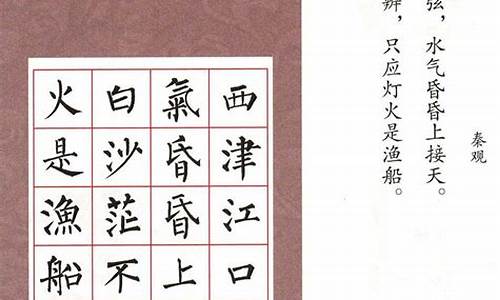 秦观
弦，水气昏昏上接天。
辨，只应灯火是渔船。
西津江口
氣昏昏上
白沙茫不
火是漁船